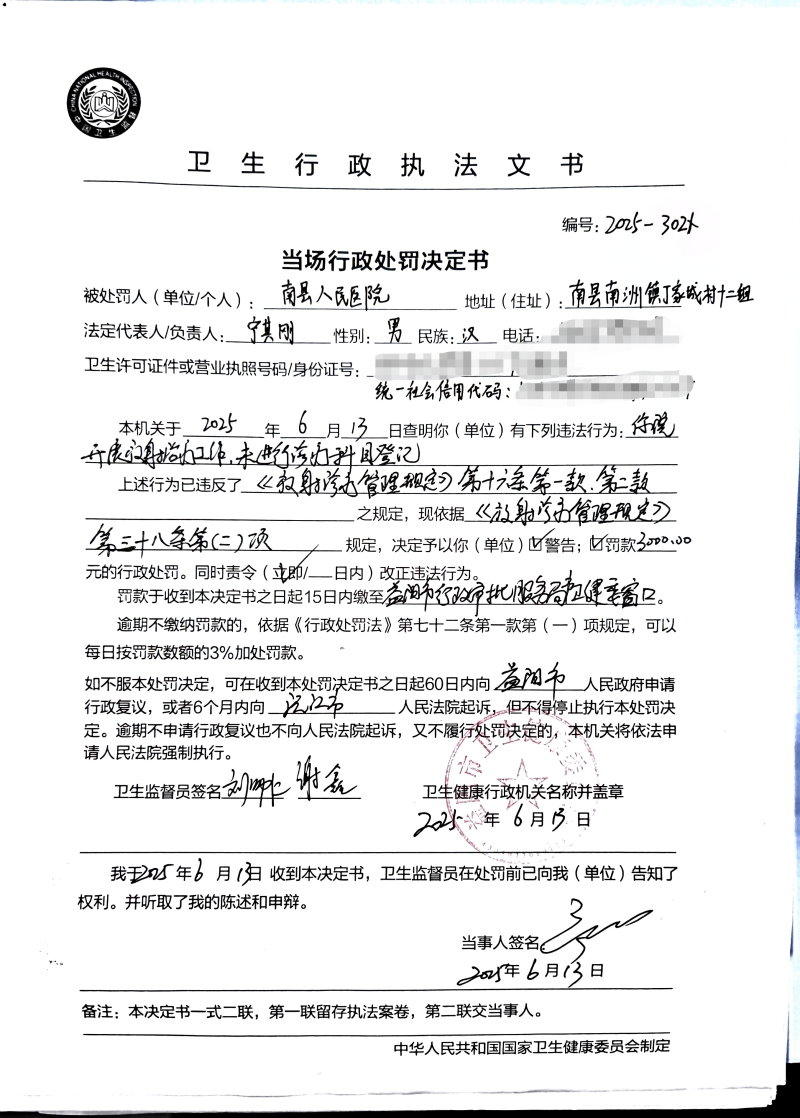 CHINA NATIONAL HEALTH INSPECTION
中国卫生监督
卫生行政执法文书
编号：2025-3021
当场行政处罚决定书
被处罚人（单位/个人）：南县人民医院 地址（住址）：南县南洲镇丁家城村十二组
法定代表人/负责人：宁其刚 性别：男 民族：汉 电话：
卫生许可证件或营业执照号码/身份证号：
统一社会信用代码：
本机关于 2025 年 6 月 13 日查明你（单位）有下列违法行为：你院
开展放射诊疗工作，未进行诊疗科目登记
上述行为已违反了《放射诊疗管理规定》第十六条第一款、第二款
之规定，现依据《放射诊疗管理规定》
第三十八条第(二)项 规定，决定予以你（单位）☑警告；☑罚款3000.00
元的行政处罚。同时责令（立即/__日内）改正违法行为。
罚款于收到本决定书之日起15日内缴至益阳市行政审批服务局卫健委窗口。
逾期不缴纳罚款的，依据《行政处罚法》第七十二条第一款第（一）项规定，可以
每日按罚款数额的3%加处罚款。
如不服本处罚决定，可在收到本处罚决定书之日起60日内向 益阳市 人民政府申请
行政复议，或者6个月内向 沅江市 人民法院起诉，但不得停止执行本处罚决
定。逾期不申请行政复议也不向人民法院起诉，又不履行处罚决定的，本机关将依法申
请人民法院强制执行。
卫生监督员签名 谢鑫 卫生健康行政机关名称并盖章
2025 年 6 月 13 日
我于2025年 6 月 13日 收到本决定书，卫生监督员在处罚前已向我（单位）告知了
权利。并听取了我的陈述和申辩。
当事人签名
2025年 6 月 13 日
备注：本决定书一式二联，第一联留存执法案卷，第二联交当事人。
中华人民共和国国家卫生健康委员会制定